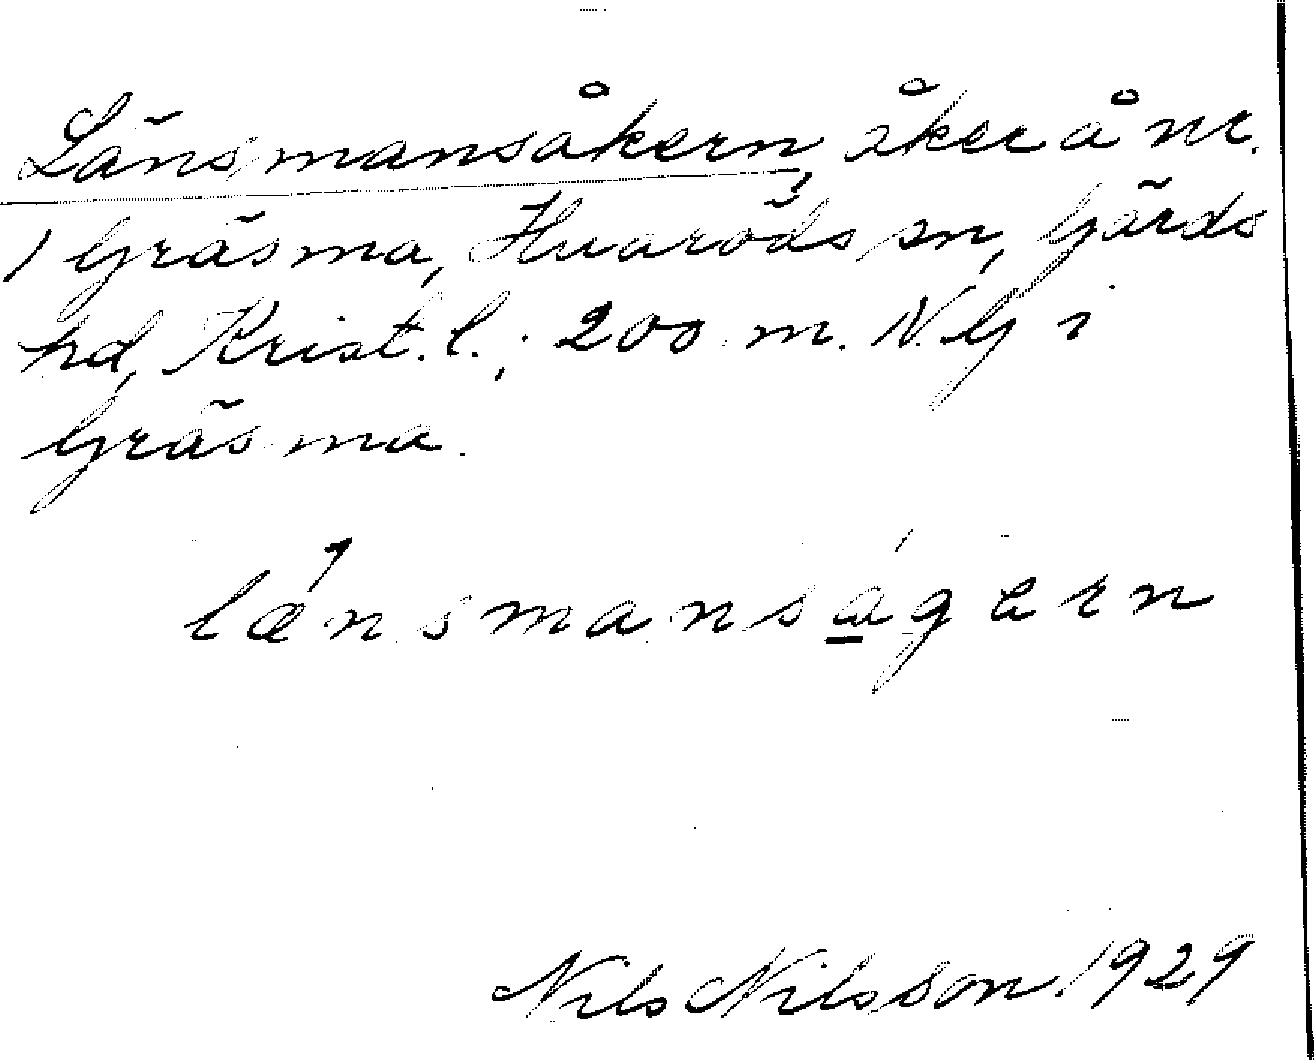 Länsmansåkern, åker å nr.
1 Gräsma, Huaröds sn, Gärds
hd, Krist. l.; 200 m. N. G i
Gräsma.
lænsmansågern
Nils Nilsson. 1929